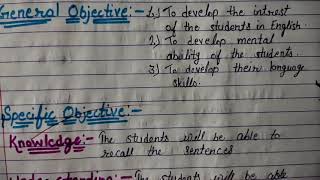 General Objective:- 1.) To develop the intrest
of the students in English.
2.) To develop mental
ability of the students.
3) To develop their language
skills.
Specific Objective:-
Knowledge:- The students will be able to
recall the sentences
Understanding:- The students will be able